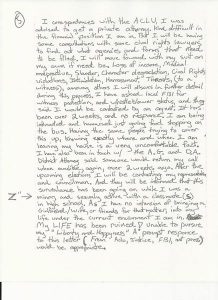 In correspondences with the ACLU, I was
advised to get a private attorney. Kind difficult in
the financial position I am in. But I will be having
some consultations with some civil rights lawyers,
to find out what agencies and forms, that need
to be filled. I will move forward with my suit on
my own if need be. Loss of income, Medical
malpractice, Slander, Character degradation, Civil Rights
violations, Intimidation, Harassment, Threats, (to a
witness), among others I will attain in further detail
during this process. I have asked local FBI for
witness protection, and whistleblower status, and they
said I would be contacted by an agent. It has
been over 2 weeks, and no response. I am being
stalked and harassed just going food shopping on
the bus. Having the same people trying to crowd
me up, knowing exactly where and when I am
leaving my house is a very uncomfortable faith.
I have also been in touch w/ the A.G. and D.A.
District Attorney said someone would return my call
when available, again, over 2 weeks ago. After the
upcoming election I will be contacting my representatives
and councilman. And they will be informed that this
surveillance has been going on while I was a
Z" → minor, and sexually active with a classmate (s)
in high school. As I have no intension of bringing a
girlfriend/wife, or friends for that matter, into my
life under the current environment I am in.
My LIFE has been ruined! Unable to pursue,
my " Liberty and Happyness". A prompt response
to this letter (From Aclu, Justice, FBI, all press)
would be appreciated.